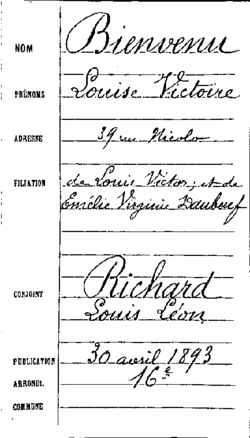 NOM Bienvenu
PRÉNOMS Louise Victoire
ADRESSE 39 rue Nicolo
FILIATION de Louis Victor, et de
Emélie Virginie Daubeuf
CONJOINT Richard
Louis Léon
PUBLICATION 30 avril 1893
ARRONDt. 16e
COMMUNE